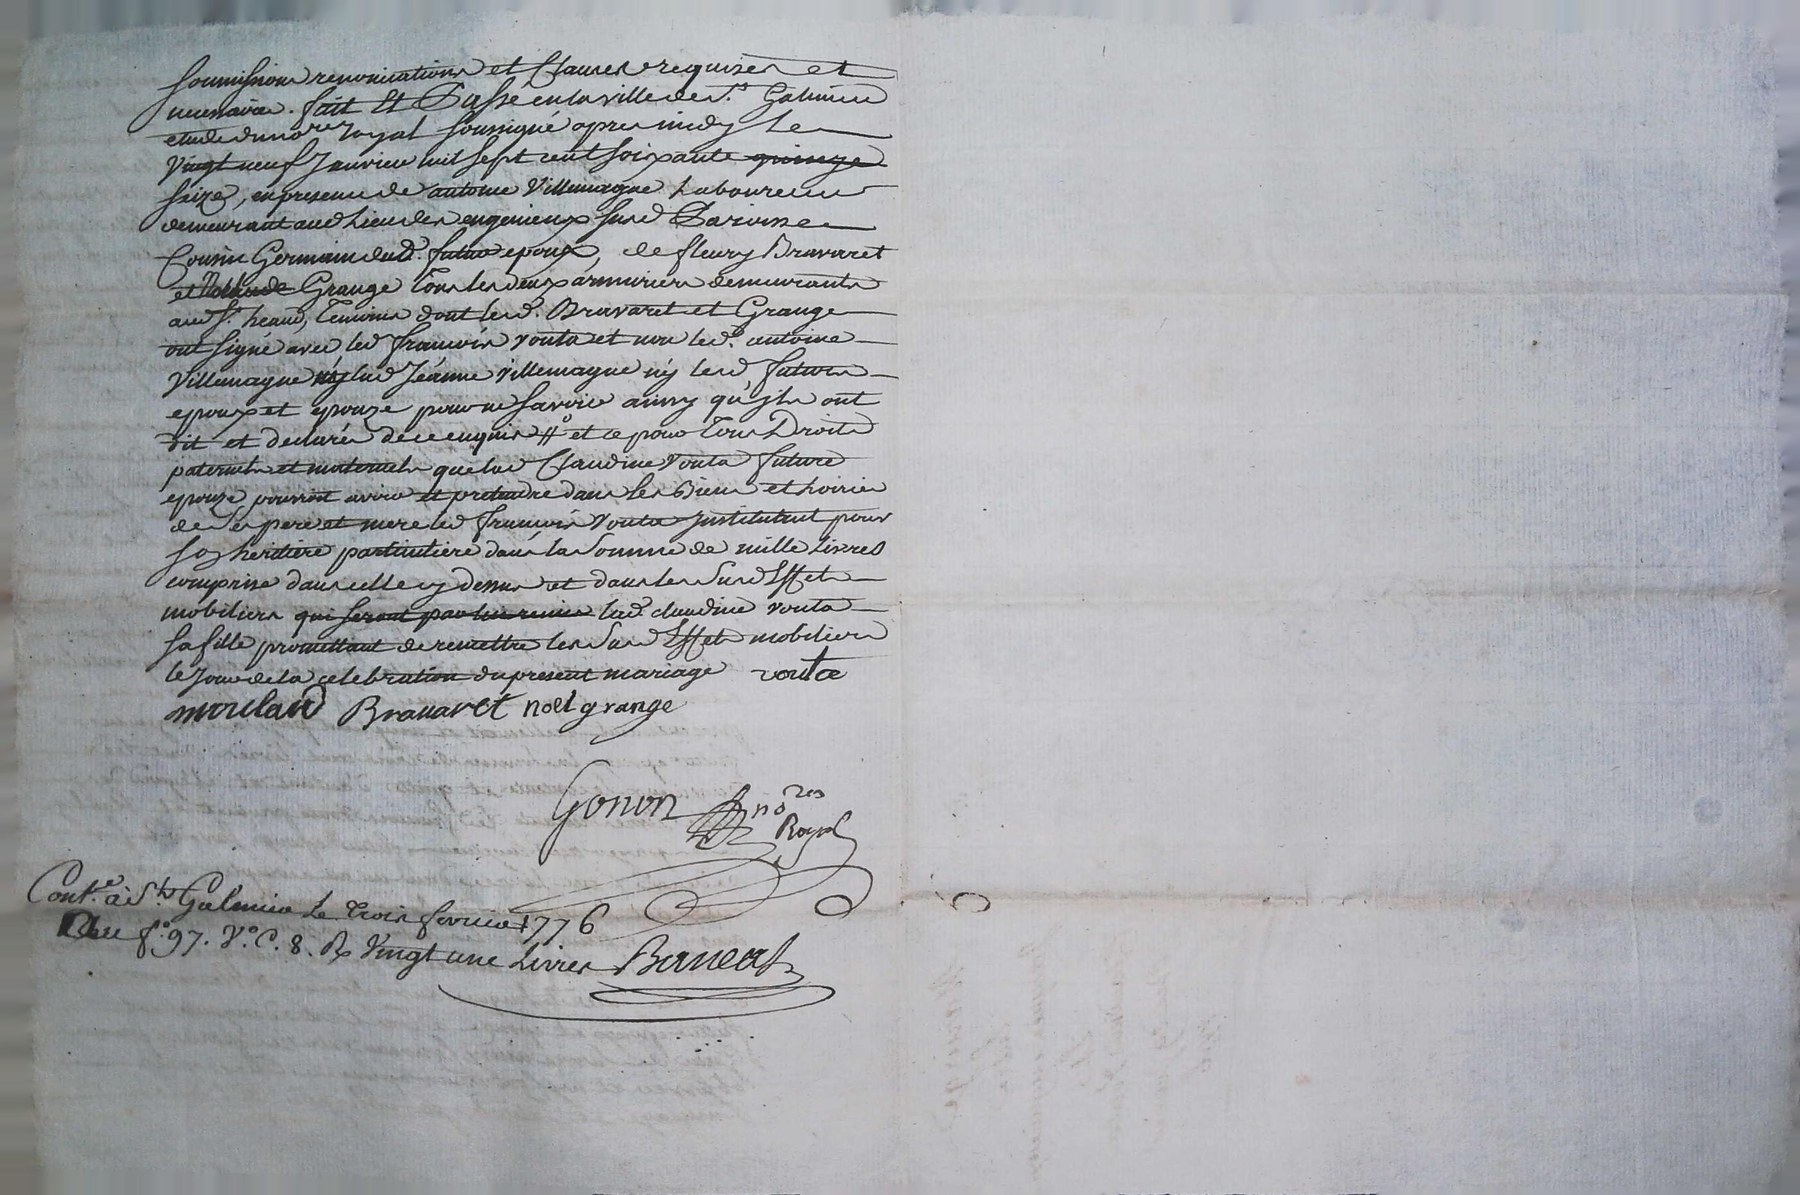 soumissions renonciations et Clauses requises et
necessaires. fait Et Passé en la ville de St. Galmier
etude du no.re royal soussigné apres midy Le
vingt neuf Janvier mil sept cent soixante quinze
seize, en presence de antoine Villemagne Laboureur
demeurant aud Lieu des engenieux susd Paroisse
Cousin Germain dud. futur epoux, de fleury Bravaret
et Grange tous les deux armuriers demeurants
aud St. heand, Temoins dont lesd. Bravaret et Grange
ont signé avec led françois vouta et non led. antoine
Villemagne ny lad Jeanne villemagne ny lesd futurs
epoux et epouze pour ne savoir ainsy qu'jls ont
dit et declarés de ce enquis # et ce pour tous Droits
paternels et maternels que lad Claudine vouta future
epouze pourroit avoir et pretendre dans les Biens et hoiries
de ses pere et mere led françois vouta Jnstituant pour
sa heritiere particuliere dans la somme de mille Livres
comprise dans celle cy dessus et dans les susd Effets
mobiliers qui seront par lui remis lad. claudine vouta
sa fille promettant de remettre les susd Effets mobiliers
le Jour de la celebration du present mariage vouta
Bravaret noel grange
Gonon no.res
Royal
Cont.e à St. Galmier Le trois fevrier 1776
f.o 97. V.o C. 8. R Vingt une Livres